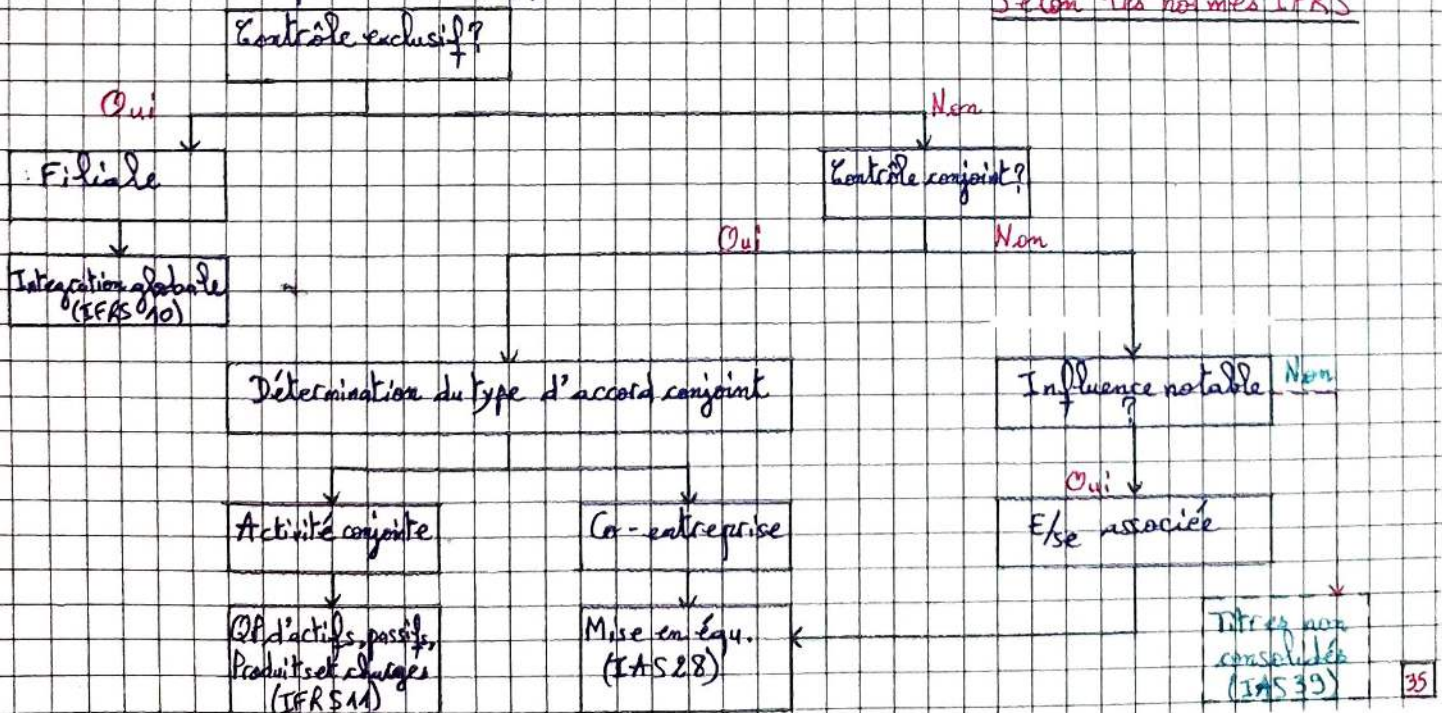 Selon les normes IFRS
Contrôle exclusif?
Oui
Non
Filiale
Contrôle conjoint?
Oui
Non
Intégration globale
(IFRS 10)
Détermination du type d'accord conjoint
Influence notable
?
Non
Oui
Activité conjointe
Co-entreprise
E/se associée
QP d'actifs, passifs,
Produits et charges
(IFRS 11)
Mise en équ.
(IAS 28)
Titres non
consolidés
(IAS 39)
35